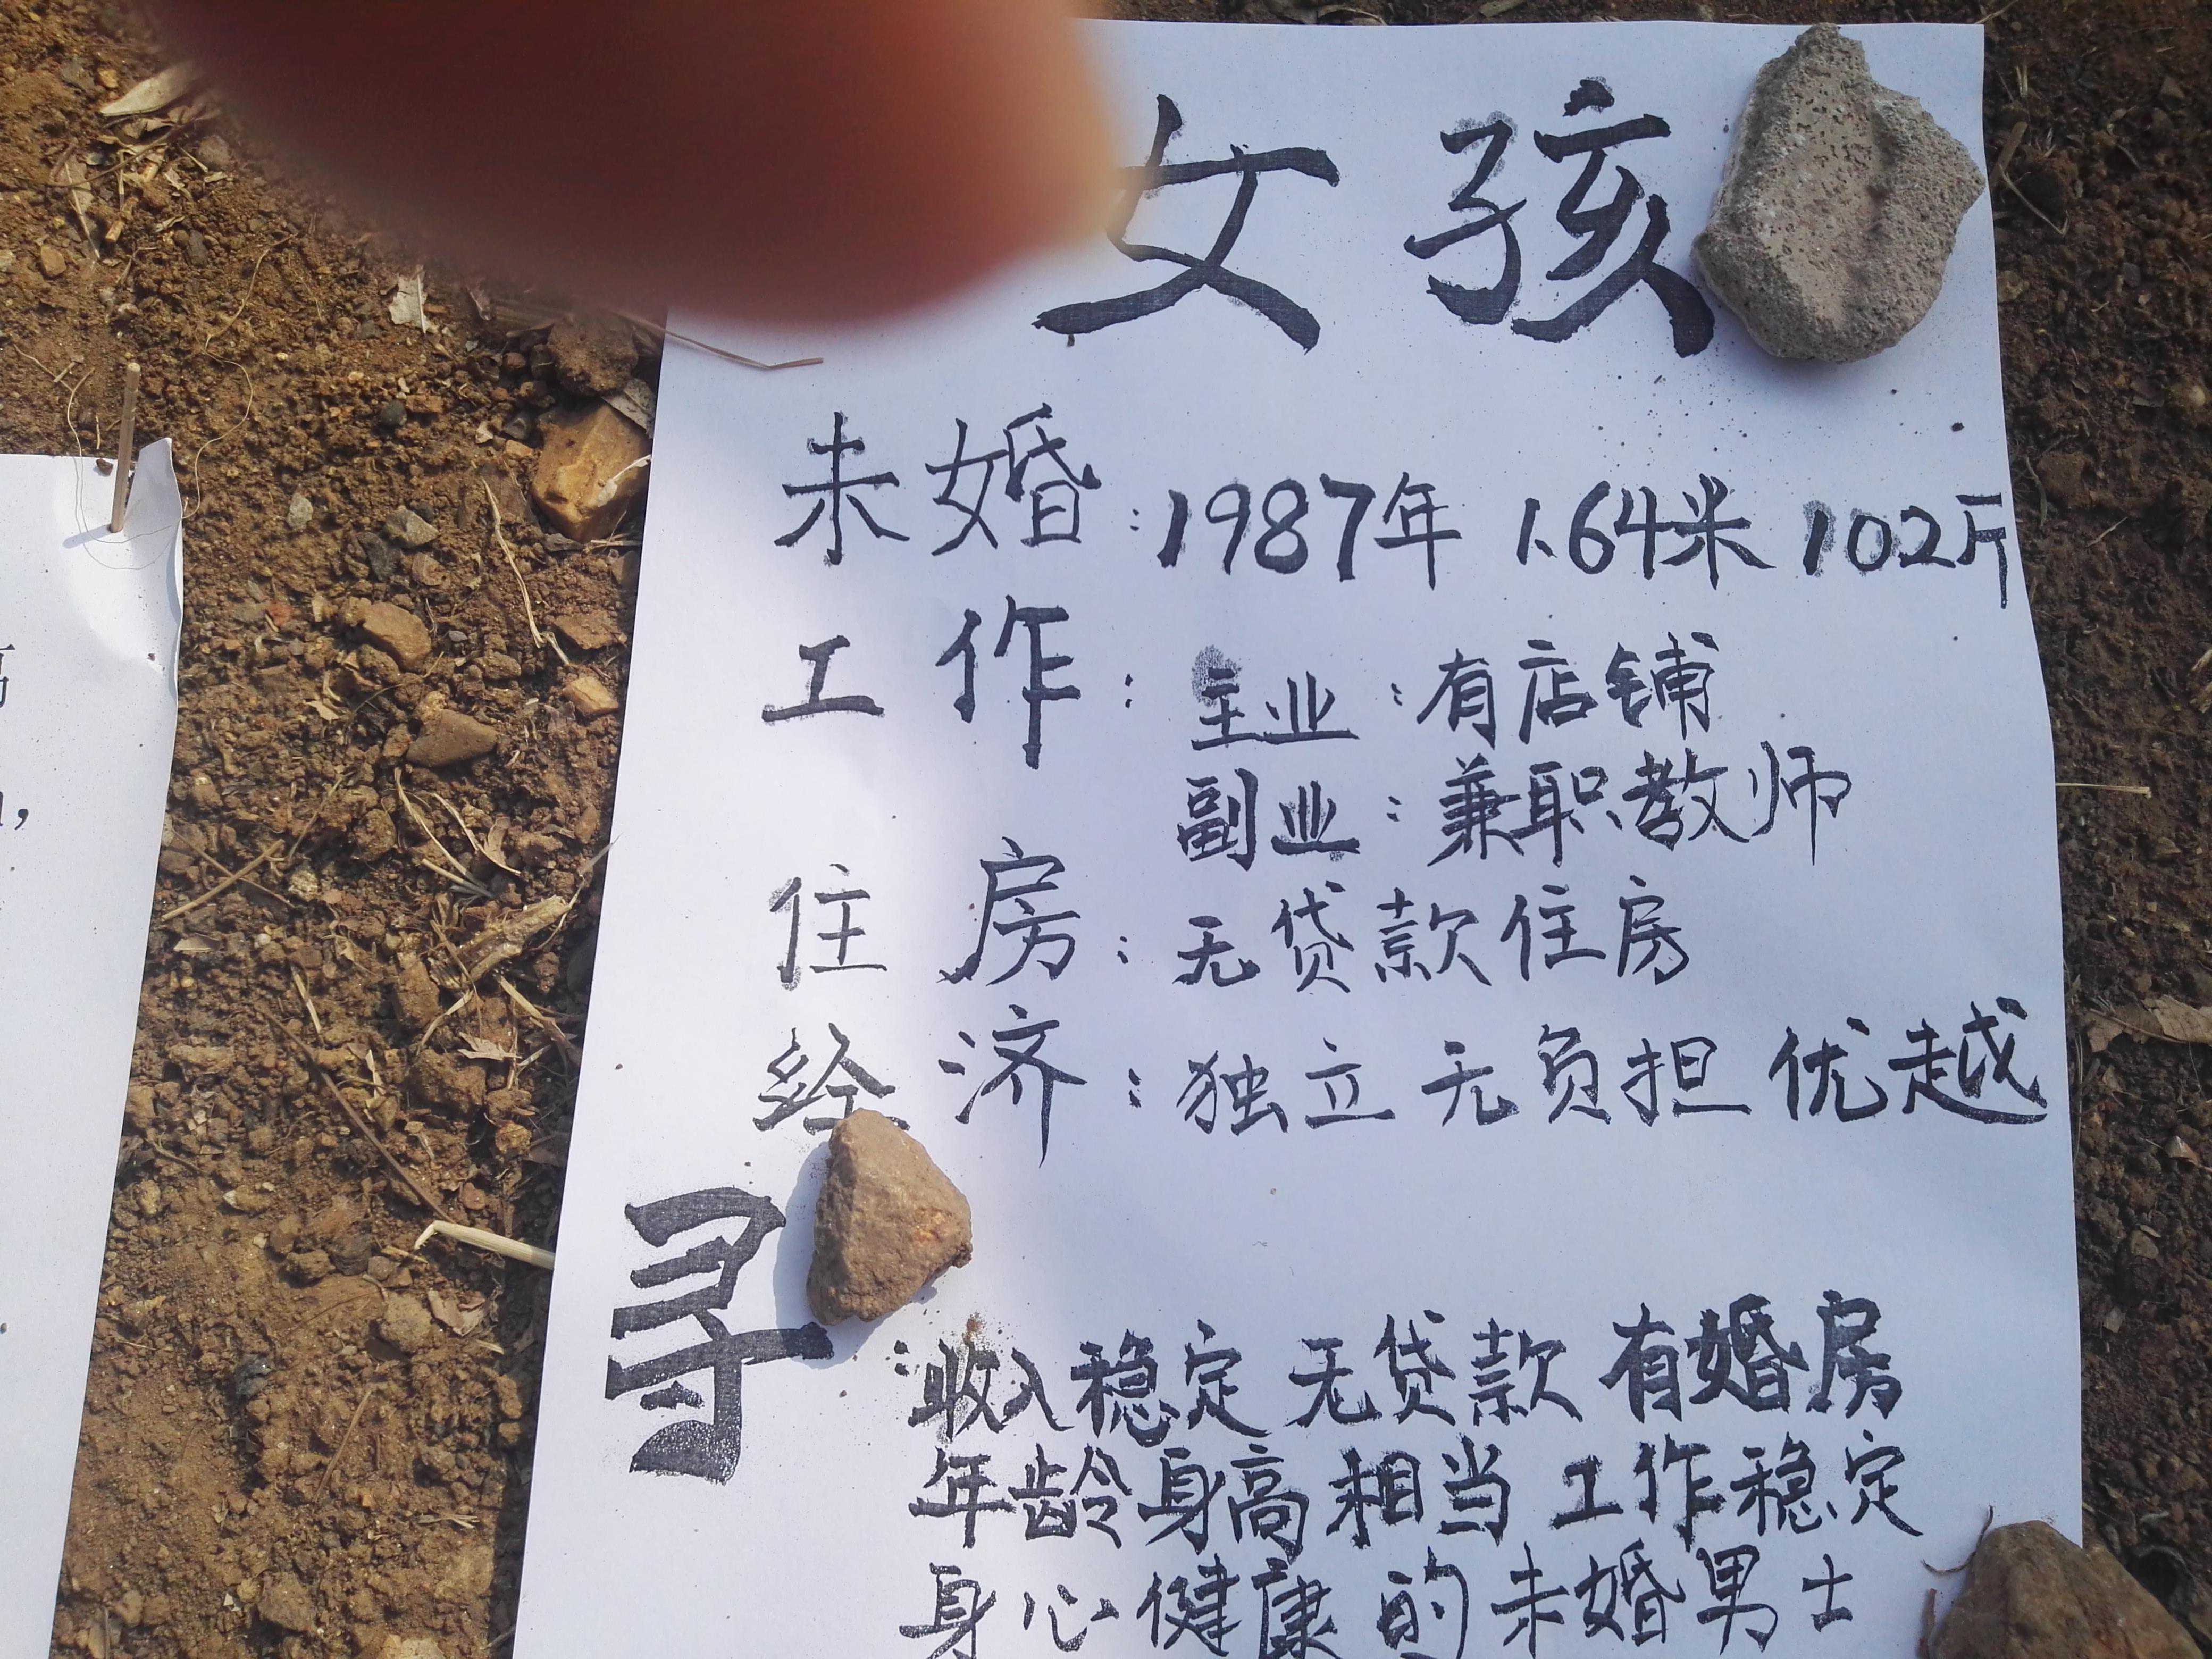 女孩
未婚:1987年 1.64米 102斤
工作:主业:有店铺
副业:兼职教师
住房:无贷款住房
经济:独立无负担优越
寻:收入稳定 无贷款 有婚房
年龄身高相当 工作稳定
身心健康的未婚男士